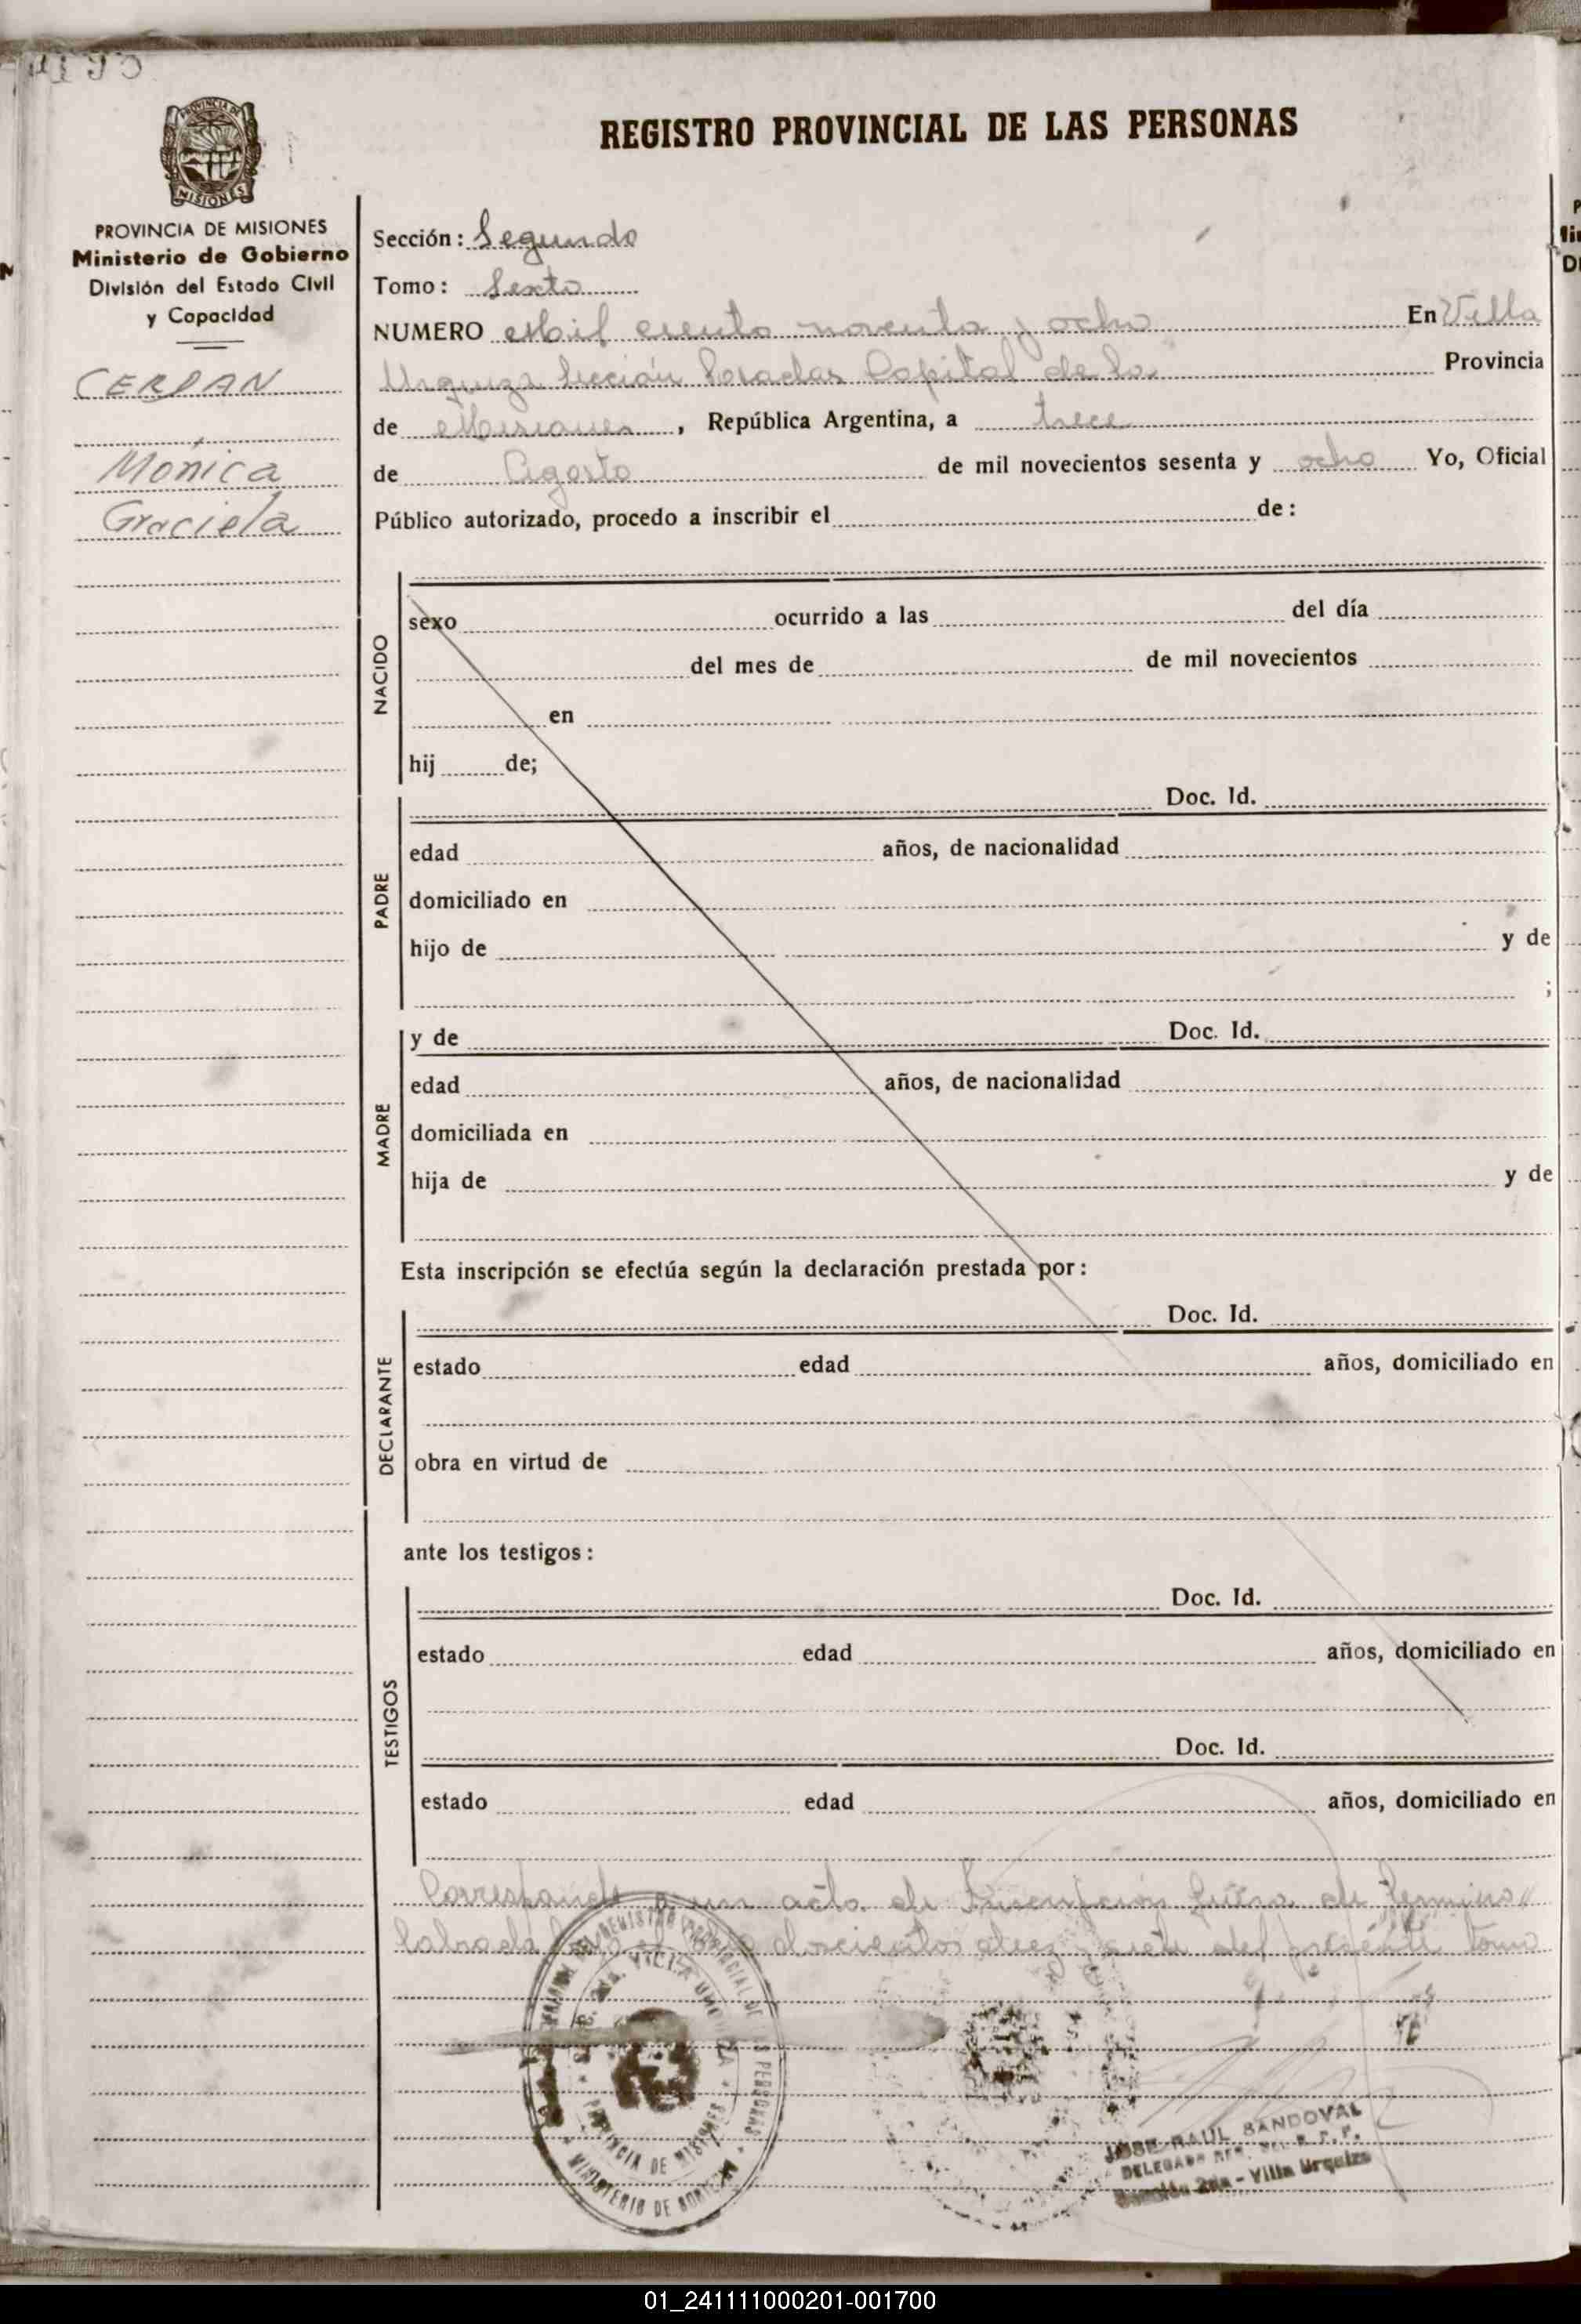 REGISTRO PROVINCIAL DE LAS PERSONAS
PROVINCIA DE
MISIONES
PROVINCIA DE MISIONES
Ministerio de Gobierno
División del Estado Civil
y Capacidad
CERPAN
Mónica
Graciela
Sección: Segundo
Tomo: Sexto
NUMERO Mil ciento noventa y ocho En Villa
Urquiza Sección Posadas Capital de la Provincia
de Misiones, República Argentina, a trece
de Agosto de mil novecientos sesenta y ocho Yo, Oficial
Público autorizado, procedo a inscribir el de:
NACIDO
sexo ocurrido a las del día
del mes de de mil novecientos
en
hij de;
PADRE
Doc. Id.
edad años, de nacionalidad
domiciliado en
hijo de y de
;
MADRE
y de Doc. Id.
edad años, de nacionalidad
domiciliada en
hija de y de
Esta inscripción se efectúa según la declaración prestada por:
DECLARANTE
Doc. Id.
estado edad años, domiciliado en
obra en virtud de
ante los testigos:
TESTIGOS
Doc. Id.
estado edad años, domiciliado en
Doc. Id.
estado edad años, domiciliado en
Corresponde a un acta de Inscripción fuera de Termino
labrada bajo el doscientos diez y siete del presente tomo
REGISTRO PROVINCIAL DE LAS PERSONAS
VILLA URQUIZA
PROVINCIA DE MISIONES
MINISTERIO DE GOBIERNO
JOSE RAUL SANDOVAL
DELEGADO
Sección 2da - Villa Urquiza
01_241111000201-001700